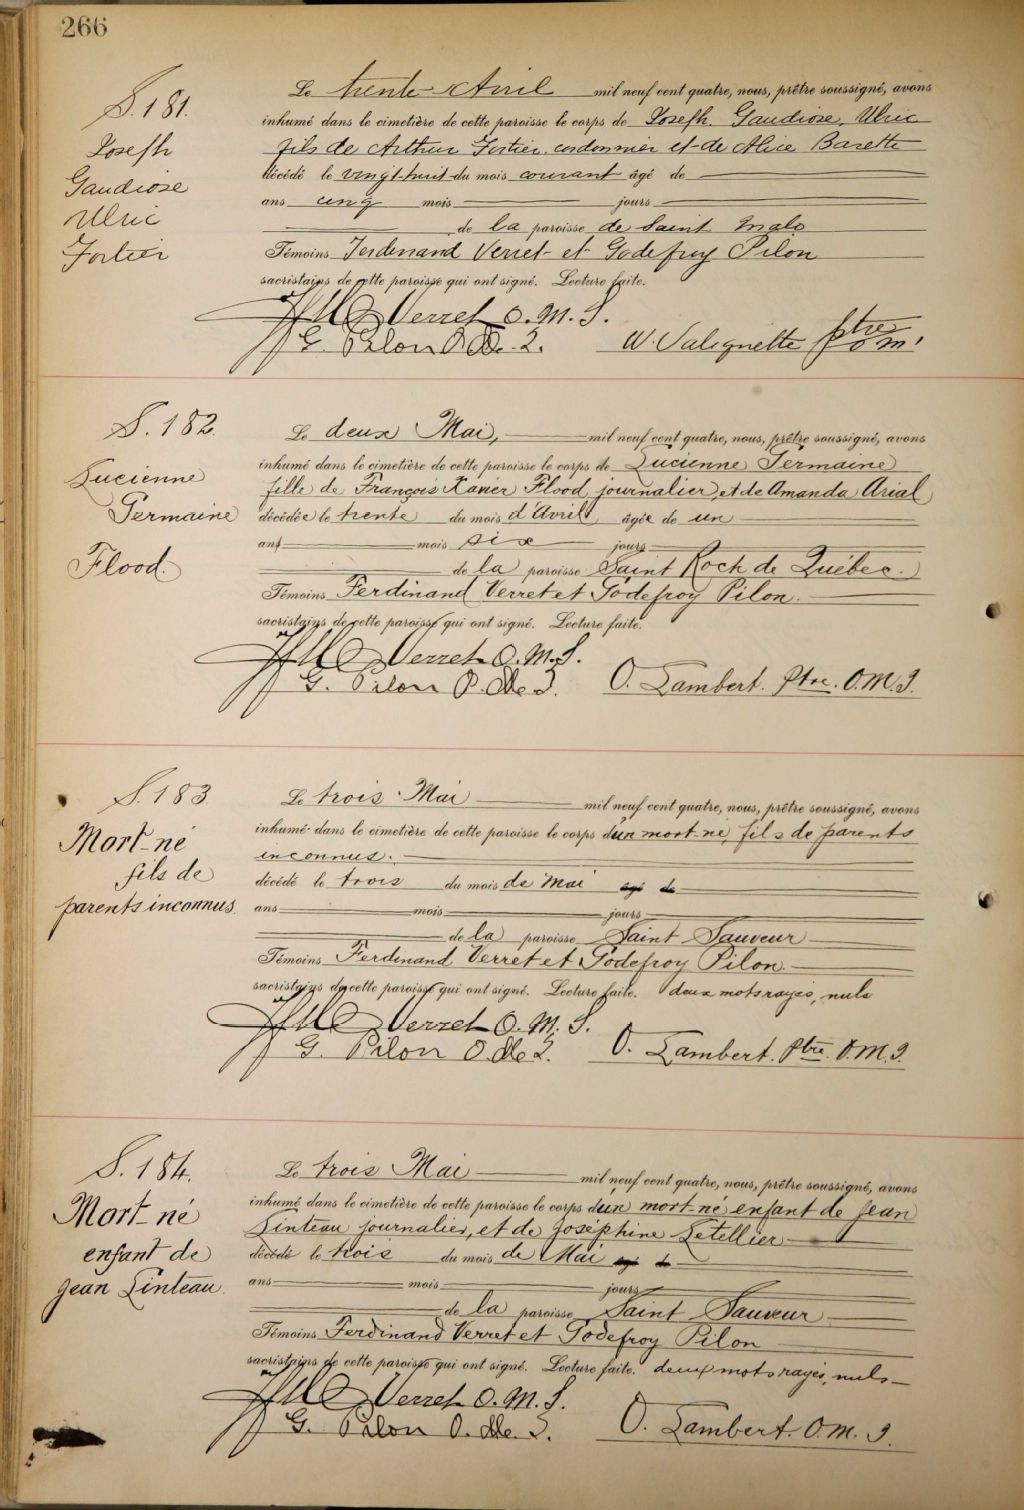 266
S. 181.
Joseph
Gaudiose
Ulric
Fortier
Le trente Avril mil neuf cent quatre, nous, prêtre soussigné, avons
inhumé dans le cimetière de cette paroisse le corps de Joseph. Gaudiose, Ulric
fils de Arthur Fortier. cordonnier et de Alice Barette
décédé le vingt-huit du mois courant âgé de
ans cinq mois jours
de la paroisse de Saint Malo
Témoins Ferdinand Verret et Godefroy Pilon
sacristains de cette paroisse qui ont signé. Lecture faite.
Verret O. M. S.
G. Pilon W. Valiquette ptre o m i
S. 182.
Lucienne
Germaine
Flood.
Le deux Mai, mil neuf cent quatre, nous, prêtre soussigné, avons
inhumé dans le cimetière de cette paroisse le corps de Lucienne Germaine
fille de François Xavier Flood, journalier, et de Amanda Arial
décédée le trente du mois d'Avril âgée de un
ans mois six jours
de la paroisse Saint Roch de Québec.
Témoins Ferdinand Verret et Godefroy Pilon.
sacristains de cette paroisse qui ont signé. Lecture faite.
Verret O. M. S.
G. Pilon O. Lambert. Ptre. O.M.I.
S. 183.
Mort-né
fils de
parents inconnus.
Le trois Mai mil neuf cent quatre, nous, prêtre soussigné, avons
inhumé dans le cimetière de cette paroisse le corps d'un mort-né, fils de parents
inconnus.
décédé le trois du mois de Mai âgé de
ans mois jours
de la paroisse Saint Sauveur
Témoins Ferdinand Verret et Godefroy Pilon.
sacristains de cette paroisse qui ont signé. Lecture faite. deux mots rayés, nuls
Verret O. M. S.
G. Pilon O. Lambert. Ptre. O.M.I.
S. 184.
Mort-né
enfant de
Jean Linteau.
Le trois Mai mil neuf cent quatre, nous, prêtre soussigné, avons
inhumé dans le cimetière de cette paroisse le corps d'un mort-né enfant de Jean
Linteau journalier, et de Joséphine Letellier
décédé le trois du mois de Mai âgé de
ans mois jours
de la paroisse Saint Sauveur
Témoins Ferdinand Verret et Godefroy Pilon
sacristains de cette paroisse qui ont signé. Lecture faite. deux mots rayés, nuls
Verret O. M. S.
G. Pilon O. Lambert. O. M. I.